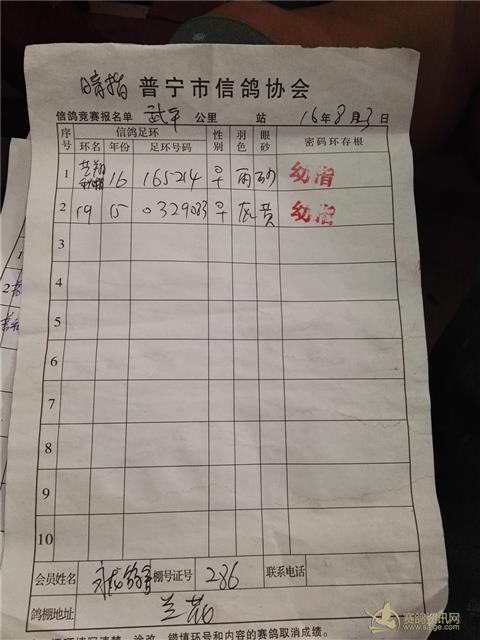 暗指 普宁市信鸽协会
信鸽竞赛报名单 武平 公里 站 16年8月3日
序号 信鸽足环 性别 羽色 眼砂 密码环存根
环名 年份 足环号码
1 16 165214 ♀ 雨 砂 幼指
2 19 15 0329083 ♀ 灰 黄 幼指
3
4
5
6
7
8
9
10
会员姓名 棚号证号 286 联系电话
鸽棚地址 兰花
错填环号和内容的赛鸽取消成绩。
赛鸽资讯网
www.saige.com